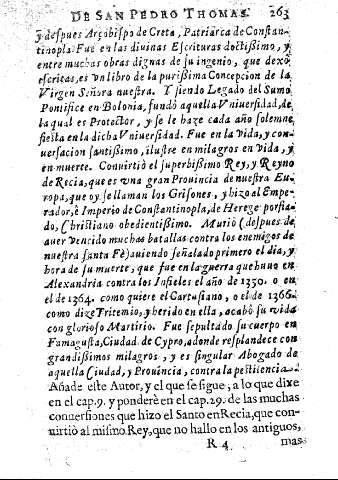 DE SAN PEDRO THOMAS. 263
y despues Arçobispo de Creta, Patriarca de Constan-
tinopla. Fue en las diuinas Escrituras doctissimo, y
entre muchas obras dignas de su ingenio, que dexò
escritas, es vn libro de la purissima Concepcion de la
Virgen Señora nuestra. Y siendo Legado del Sumo
Pontifice en Bolonia, fundò aquella Vniuersidad, de
la qual es Protector, y se le haze cada año solemne
fiesta en la dicha Vniuersidad. Fue en la vida, y con-
uersacion santissimo, ilustre en milagros en vida, y
en muerte. Conuirtiò el superbissimo Rey, y Reyno
de Recia, que es vna gran Prouincia de nuestra Eu-
ropa, que oy se llaman los Grisones, y hizo al Empe-
rador, è Imperio de Constantinopla, de Herege porfia-
do, Christiano obedientissimo. Muriò (despues de
auer vencido muchas batallas contra los enemigos de
nuestra santa Fè) auiendo señalado primero el dia, y
hora de su muerte, que fue en la guerra que huuo en
Alexandria contra los Infieles el año de 1350. o en
el de 1364. como quiere el Cartusiano, o el de 1366.
como dize Tritemio, y herido en ella, acabò su vida
con glorioso Martirio. Fue sepultado su cuerpo en
Famagusta, Ciudad de Cypro, adonde resplandece con
grandissimos milagros, y es singular Abogado de
aquella Ciudad, y Prouincia, contra la pestilencia.
Añade este Autor, y el que se sigue, a lo que dixe
en el cap. 9. y ponderè en el cap. 29. de las muchas
conuersiones que hizo el Santo en Recia, que con-
uirtiò al mismo Rey, que no hallo en los antiguos,
R 4 mas